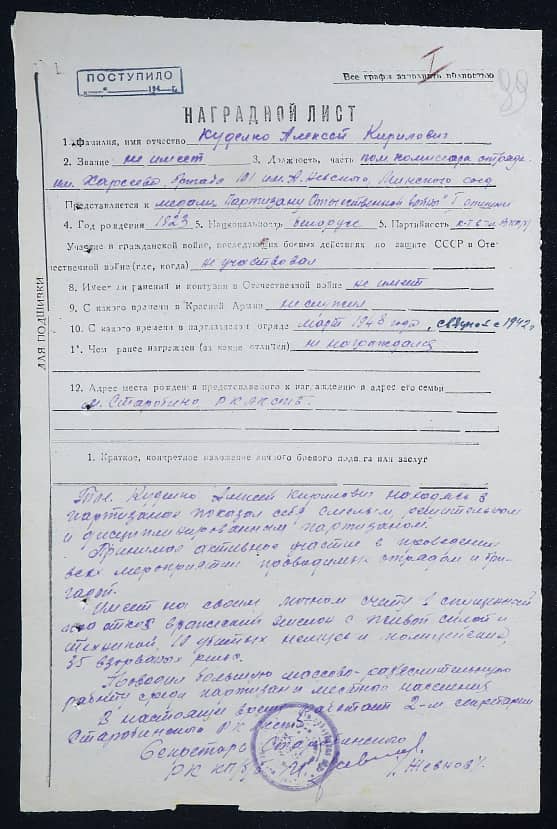 I
89
ПОСТУПИЛО
Все графы заполнять полностью
НАГРАДНОЙ ЛИСТ
1. Фамилия, имя отчество Куденко Алексей Кирилович
2. Звание не имеет 3. Должность, часть пом. комиссара отряда
им. бригада 101 им. А. Невского, Минского соед.
Представляется к медали "Партизану Отечественной войны" I степени
4. Год рождения 1923 5. Национальность белорус 5. Партийность
Участие в гражданской войне, последующих боевых действиях по защите СССР и Оте-
чественной войне (где, когда) не участвовал
8. Имеет ли ранения и контузии в Отечественной войне не имеет
9. С какого времени в Красной Армии не служил
10. С какого времени в партизанском отряде март 1943 года, с 1942г
1. Чем ранее награжден (за какие отличия) не награждался
ДЛЯ ПОДШИВКИ
12. Адрес места рождения представляемого к награждению и адрес его семьи
м. Старобино РК ЛКСМБ.
1. Краткое, конкретное изложение личного боевого подвига или заслуг
Тов. Куденко Алексей Кирилович находясь в
партизанах показал себя смелым, решительным
и дисциплинированным партизаном.
Принимал активное участие в проведении
всех мероприятий проводимых отрядом и бри-
гадой.
Имеет на своем личном счету 1 спущенный
под откос вражеский эшелон с живой силой и
техникой, 10 убитых немцев и полицейских,
35 взорваных рельс.
Проводил большую массово-раз'яснительную
работу среди партизан и местного населения
В настоящее время работает 2-м секретарем
Старобинского РК ЛКСМБ.
Секретарь Старобинского
РК КП(б)Б /Жевнов/.